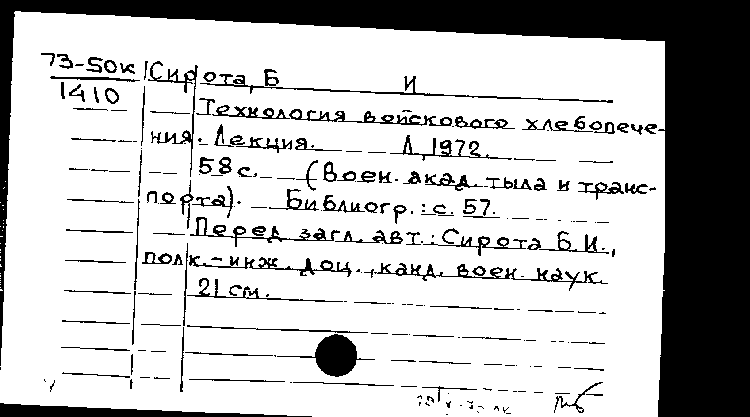 73-50к Сирота, Б И
1410
Технология войскового хлебопече-
ния. Лекция. Л, 1972.
58 с. (Воен. акад. тыла и транс-
порта). Библиогр.: с. 57.
Перед загл. авт.: Сирота Б.И.,
полк.-инж. доц., канд. воен. наук.
21 см.